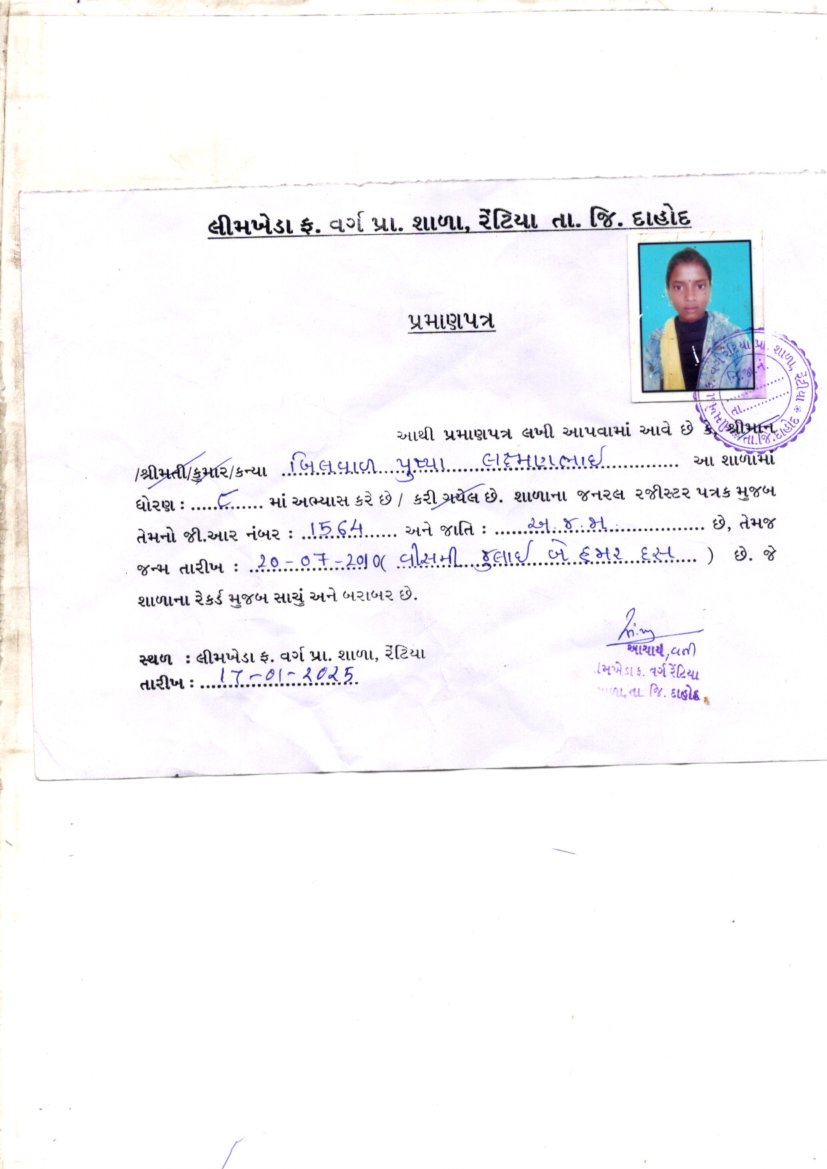 લીમખેડા ફ. વર્ગ પ્રા. શાળા, રેંટિયા તા. જિ. દાહોદ
પ્રમાણપત્ર
આથી પ્રમાણપત્ર લખી આપવામાં આવે છે કે, શ્રીમાન
/શ્રીમતી/કુમાર/કન્યા બિલવાળ પુષ્પા લક્ષ્મણભાઈ આ શાળામાં
ધોરણ : ૮ માં અભ્યાસ કરે છે / કરી ગયેલ છે. શાળાના જનરલ રજીસ્ટર પત્રક મુજબ
તેમનો જી.આર નંબર : 1564 અને જાતિ : અ.જ.જા છે, તેમજ
જન્મ તારીખ : 20-07-2010 ( વીસમી જુલાઈ બે હજાર દસ ) છે. જે
શાળાના રેકર્ડ મુજબ સાચું અને બરાબર છે.
સ્થળ : લીમખેડા ફ. વર્ગ પ્રા. શાળા, રેંટિયા
તારીખ : 17-01-2025
આચાર્ય, વતી
લીમખેડા ફ. વર્ગ રેંટિયા
શાળા, તા. જિ. દાહોદ